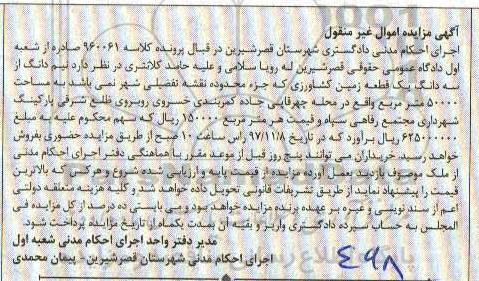 آگهی مزایده اموال غیر منقول
اجرای احکام مدنی دادگستری شهرستان قصرشیرین در قبال پرونده کلاسه ۹۶۰۰۶۱ صادره از شعبه
اول دادگاه عمومی حقوقی قصرشیرین له رویا سلامی و علیه حامد کلانتری در نظر دارد نیم دانگ از
سه دانگ یک قطعه زمین کشاورزی که جزء محدوده نقشه تفصیلی شهر نمی باشد به مساحت
۵۰۰۰۰ متر مربع واقع در محله چهرقاپی جاده کمربندی خسروی روبروی ضلع شرقی پارکینگ
شهرداری مجتمع رفاهی سپاه و قیمت هر متر مربع ۱۵۰۰۰۰ ریال که سهم محکوم علیه به مبلغ
۶۲۵۰۰۰۰۰۰ ریال برآورد که در تاریخ ۹۷/۱۱/۸ راس ساعت ۱۰ صبح از طریق مزایده حضوری بفروش
خواهد رسید. خریداران می توانند پنج روز قبل از موعد مقرر با هماهنگی دفتر اجرای احکام مدنی
از ملک موصوف بازدید بعمل آورده مزایده از قیمت پایه و ارزیابی شده شروع و هرکس که بالاترین
قیمت را پیشنهاد نماید از طریق تشریفات قانونی تحویل داده خواهد شد و کلیه هزینه متعلقه دولتی
اعم از سند نویسی و غیره بر عهده برنده مزایده خواهد بود و می بایستی ده درصد از کل مزایده فی
المجلس به حساب سپرده دادگستری واریز و بقیه آن بمدت یکماه از تاریخ مزایده پرداخت شود.
مدیر دفتر واحد اجرای احکام مدنی شعبه اول
اجرای احکام مدنی شهرستان قصرشیرین - پیمان محمدی
۴۹۸